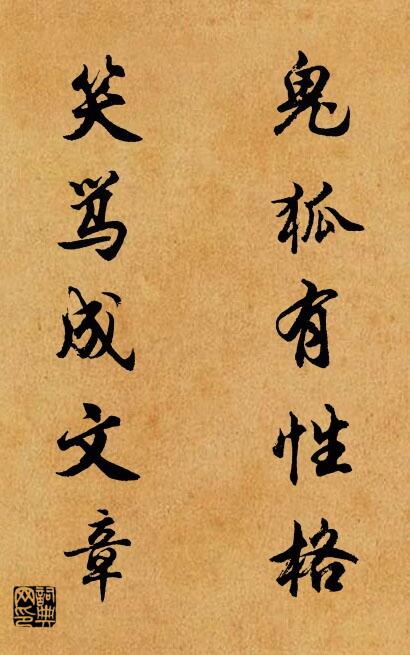 鬼狐有性格
笑骂成文章
詞典网印